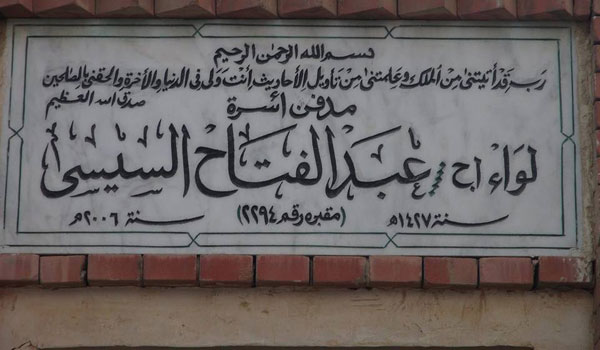 بسم الله الرحمن الرحيم
رب قد أتيتنى من الملك وعلمتنى من تأويل الأحاديث أنت ولى فى الدنيا والأخرة والحقنى بالصالحين
صدق الله العظيم
مدفن أسرة
لواء أ ح / عبد الفتاح السيسى
سنة ١٤٢٧هـ (مقبره رقم ٢٢٩٤) سنة ٢٠٠٦م